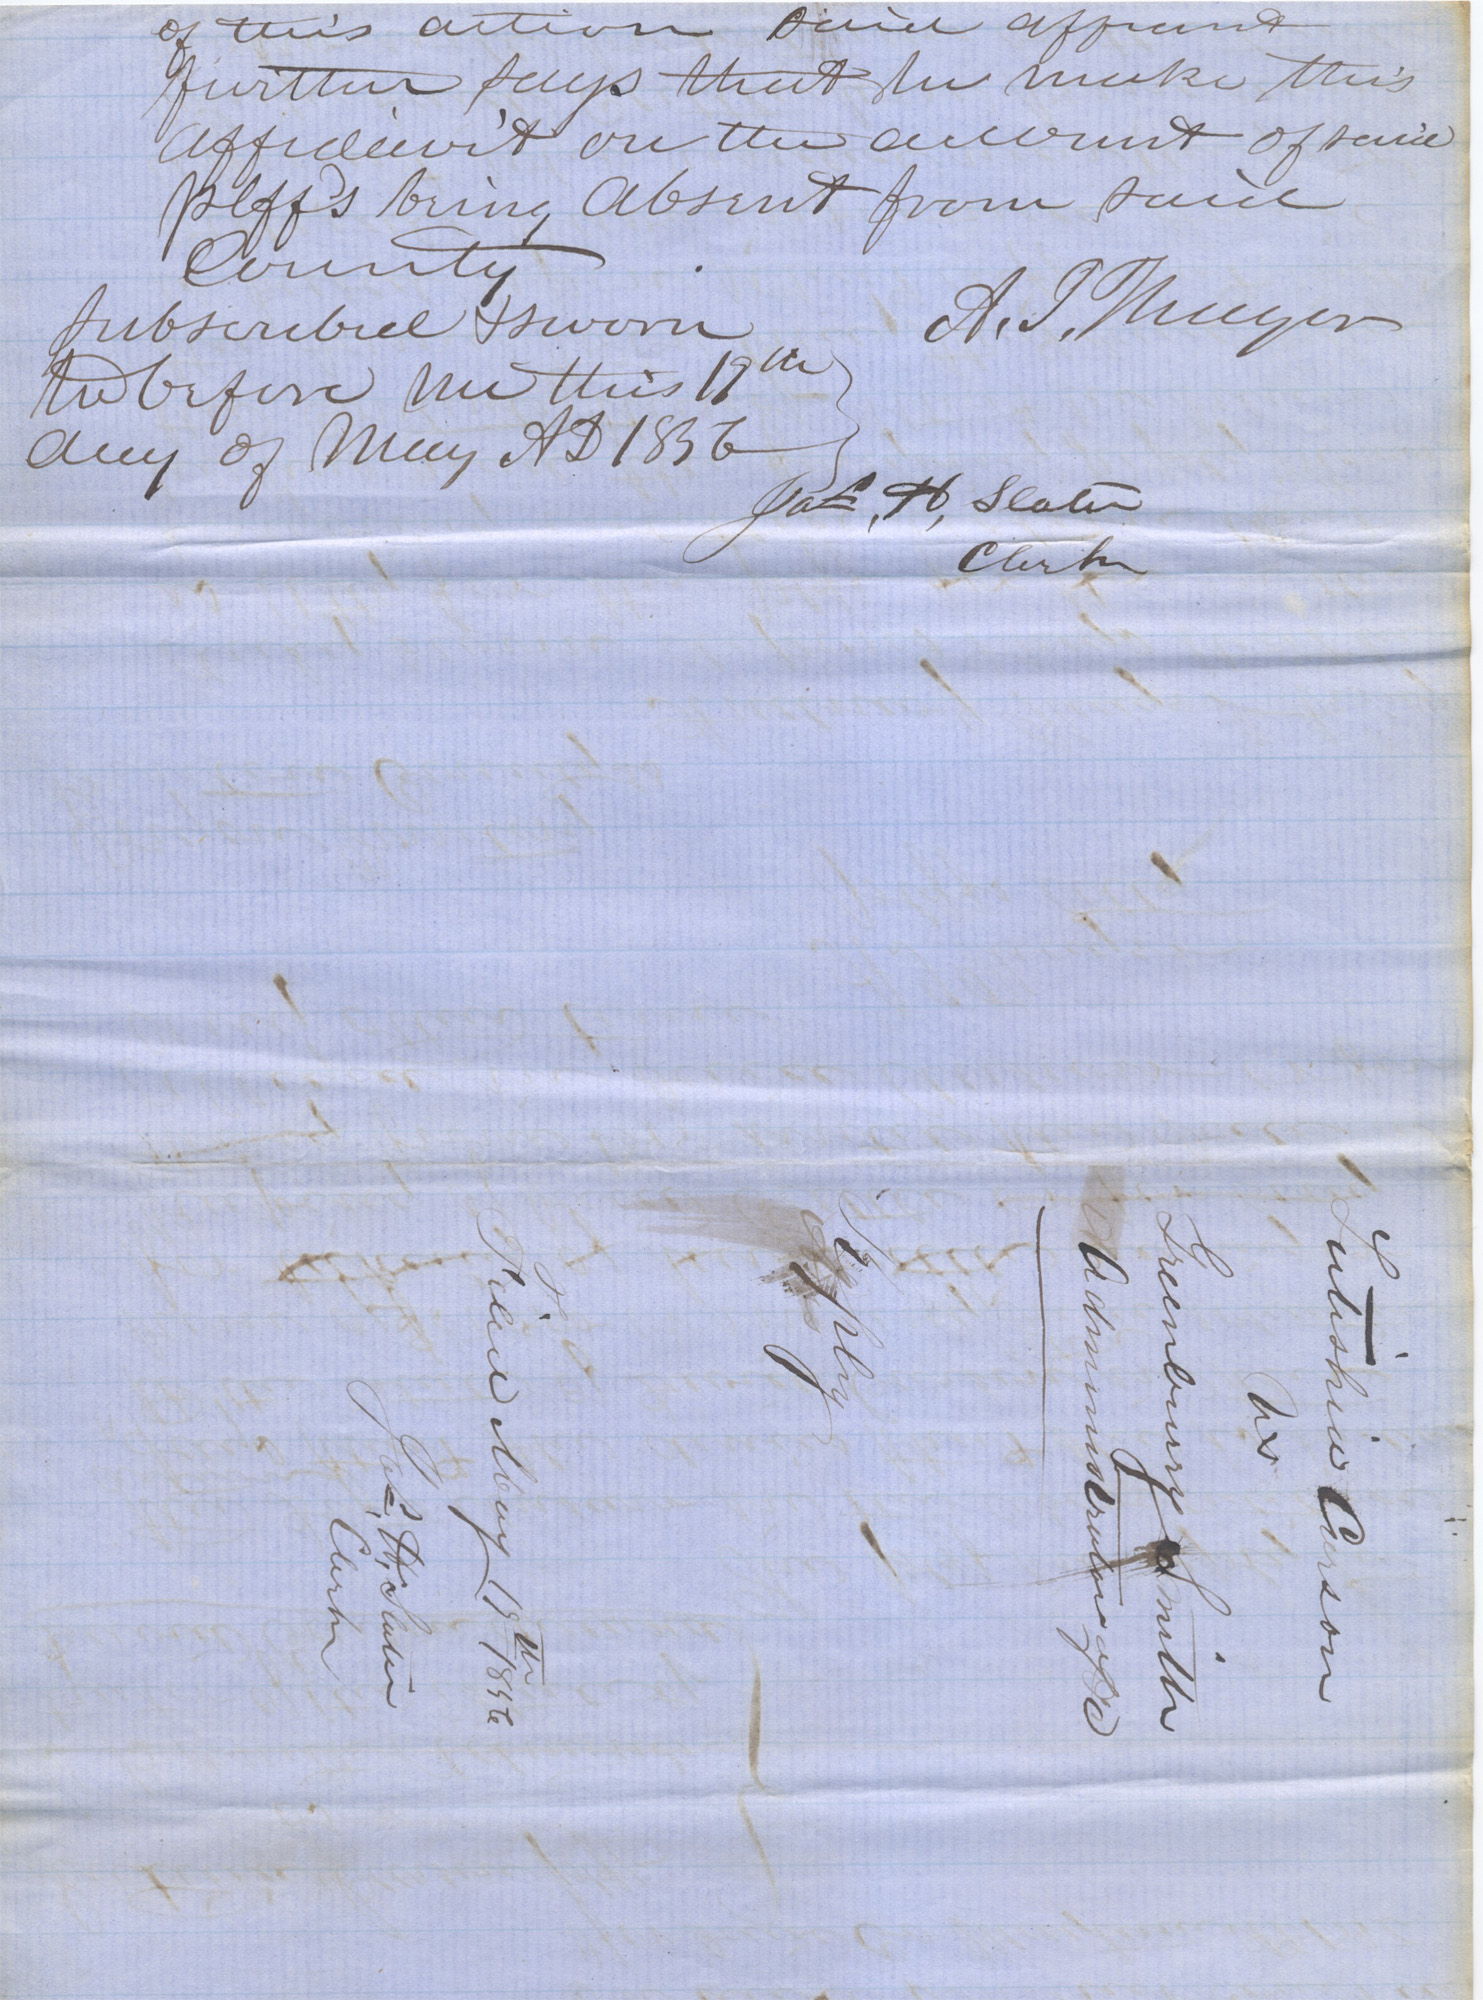 of this action said affiant
further says that he make this
affidavit on the account of said
plffs being absent from said
County
Subscribed & sworn
to before me this 19th
day of May AD 1856
A. J. Thayer
Jas. H. Slater
Clerk
Letishia Carson
vs
Greenburry Smith
Administrator &c
Reply
Filed May 19th 1856
Jas. H. Slater
Clerk